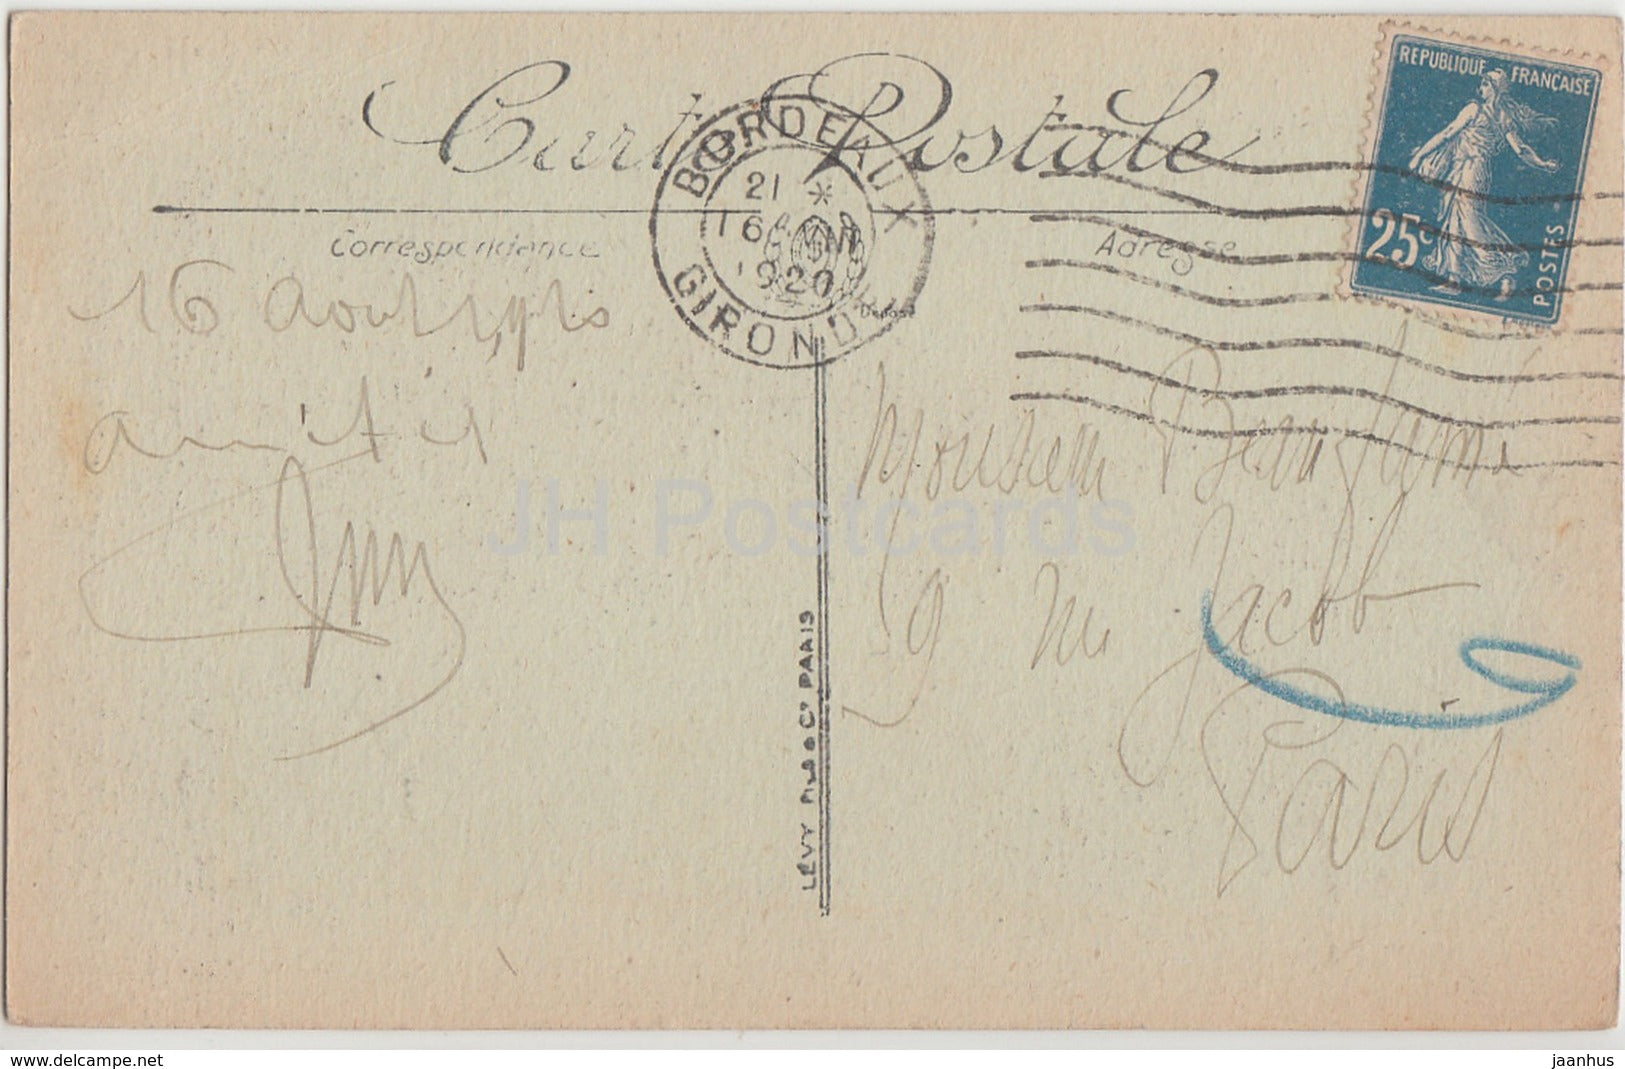 Carte Postale
RÉPUBLIQUE FRANÇAISE
25c
POSTES
BORDEAUX
21 *
16 VIII
1920
GIRONDE
Correspondance
Adresse
Déposé
16 Aout 1920
amitiés
Monsieur
59 rue Jacob
Paris
LÉVY FILS & Cie PARIS
JH Postcards
delcampe.net
jaanhus